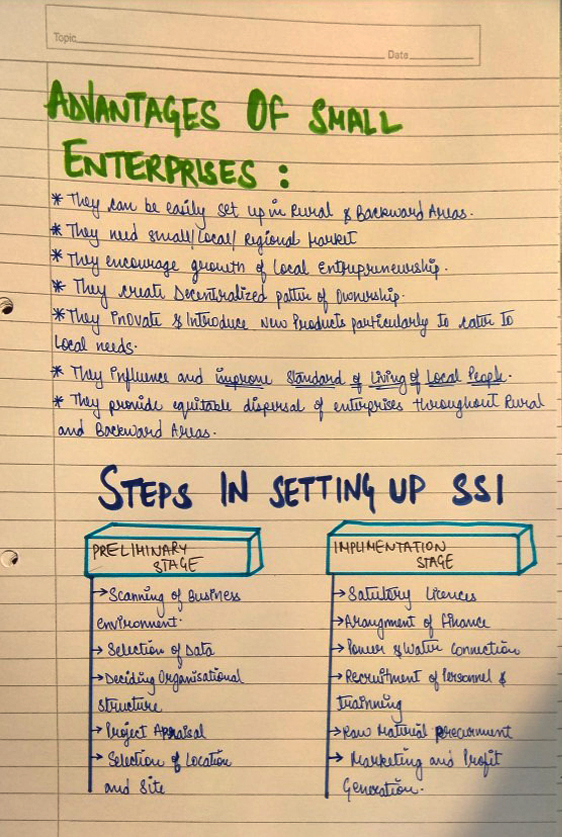 Topic
Date
ADVANTAGES OF SMALL
ENTERPRISES :
* They can be easily set up in Rural & Backward Areas.
* They need small/Local/Regional Market
* They encourage growth of Local Entrepreneurship.
* They create Decentralized pattern of Ownership.
* They Inovate & Introduce New Products particularly to cater to
Local needs.
* They Influence and improve Standard of Living of Local People.
* They provide equitable dispersal of enterprises throughout Rural
and Backward Areas.
STEPS IN SETTING UP SSI
PRELIMINARY
STAGE
→ Scanning of Business
environment.
→ Selection of Data
→ Deciding Organisational
Structure
→ Project Appraisal
→ Selection of Location
and Site
IMPLIMENTATION
STAGE
→ Satutury Licences
→ Arangment of Finance
→ Power & Water Connection
→ Recruitment of Personnel &
trainning
→ Raw Material Precurment
→ Marketing and Profit
Generation.